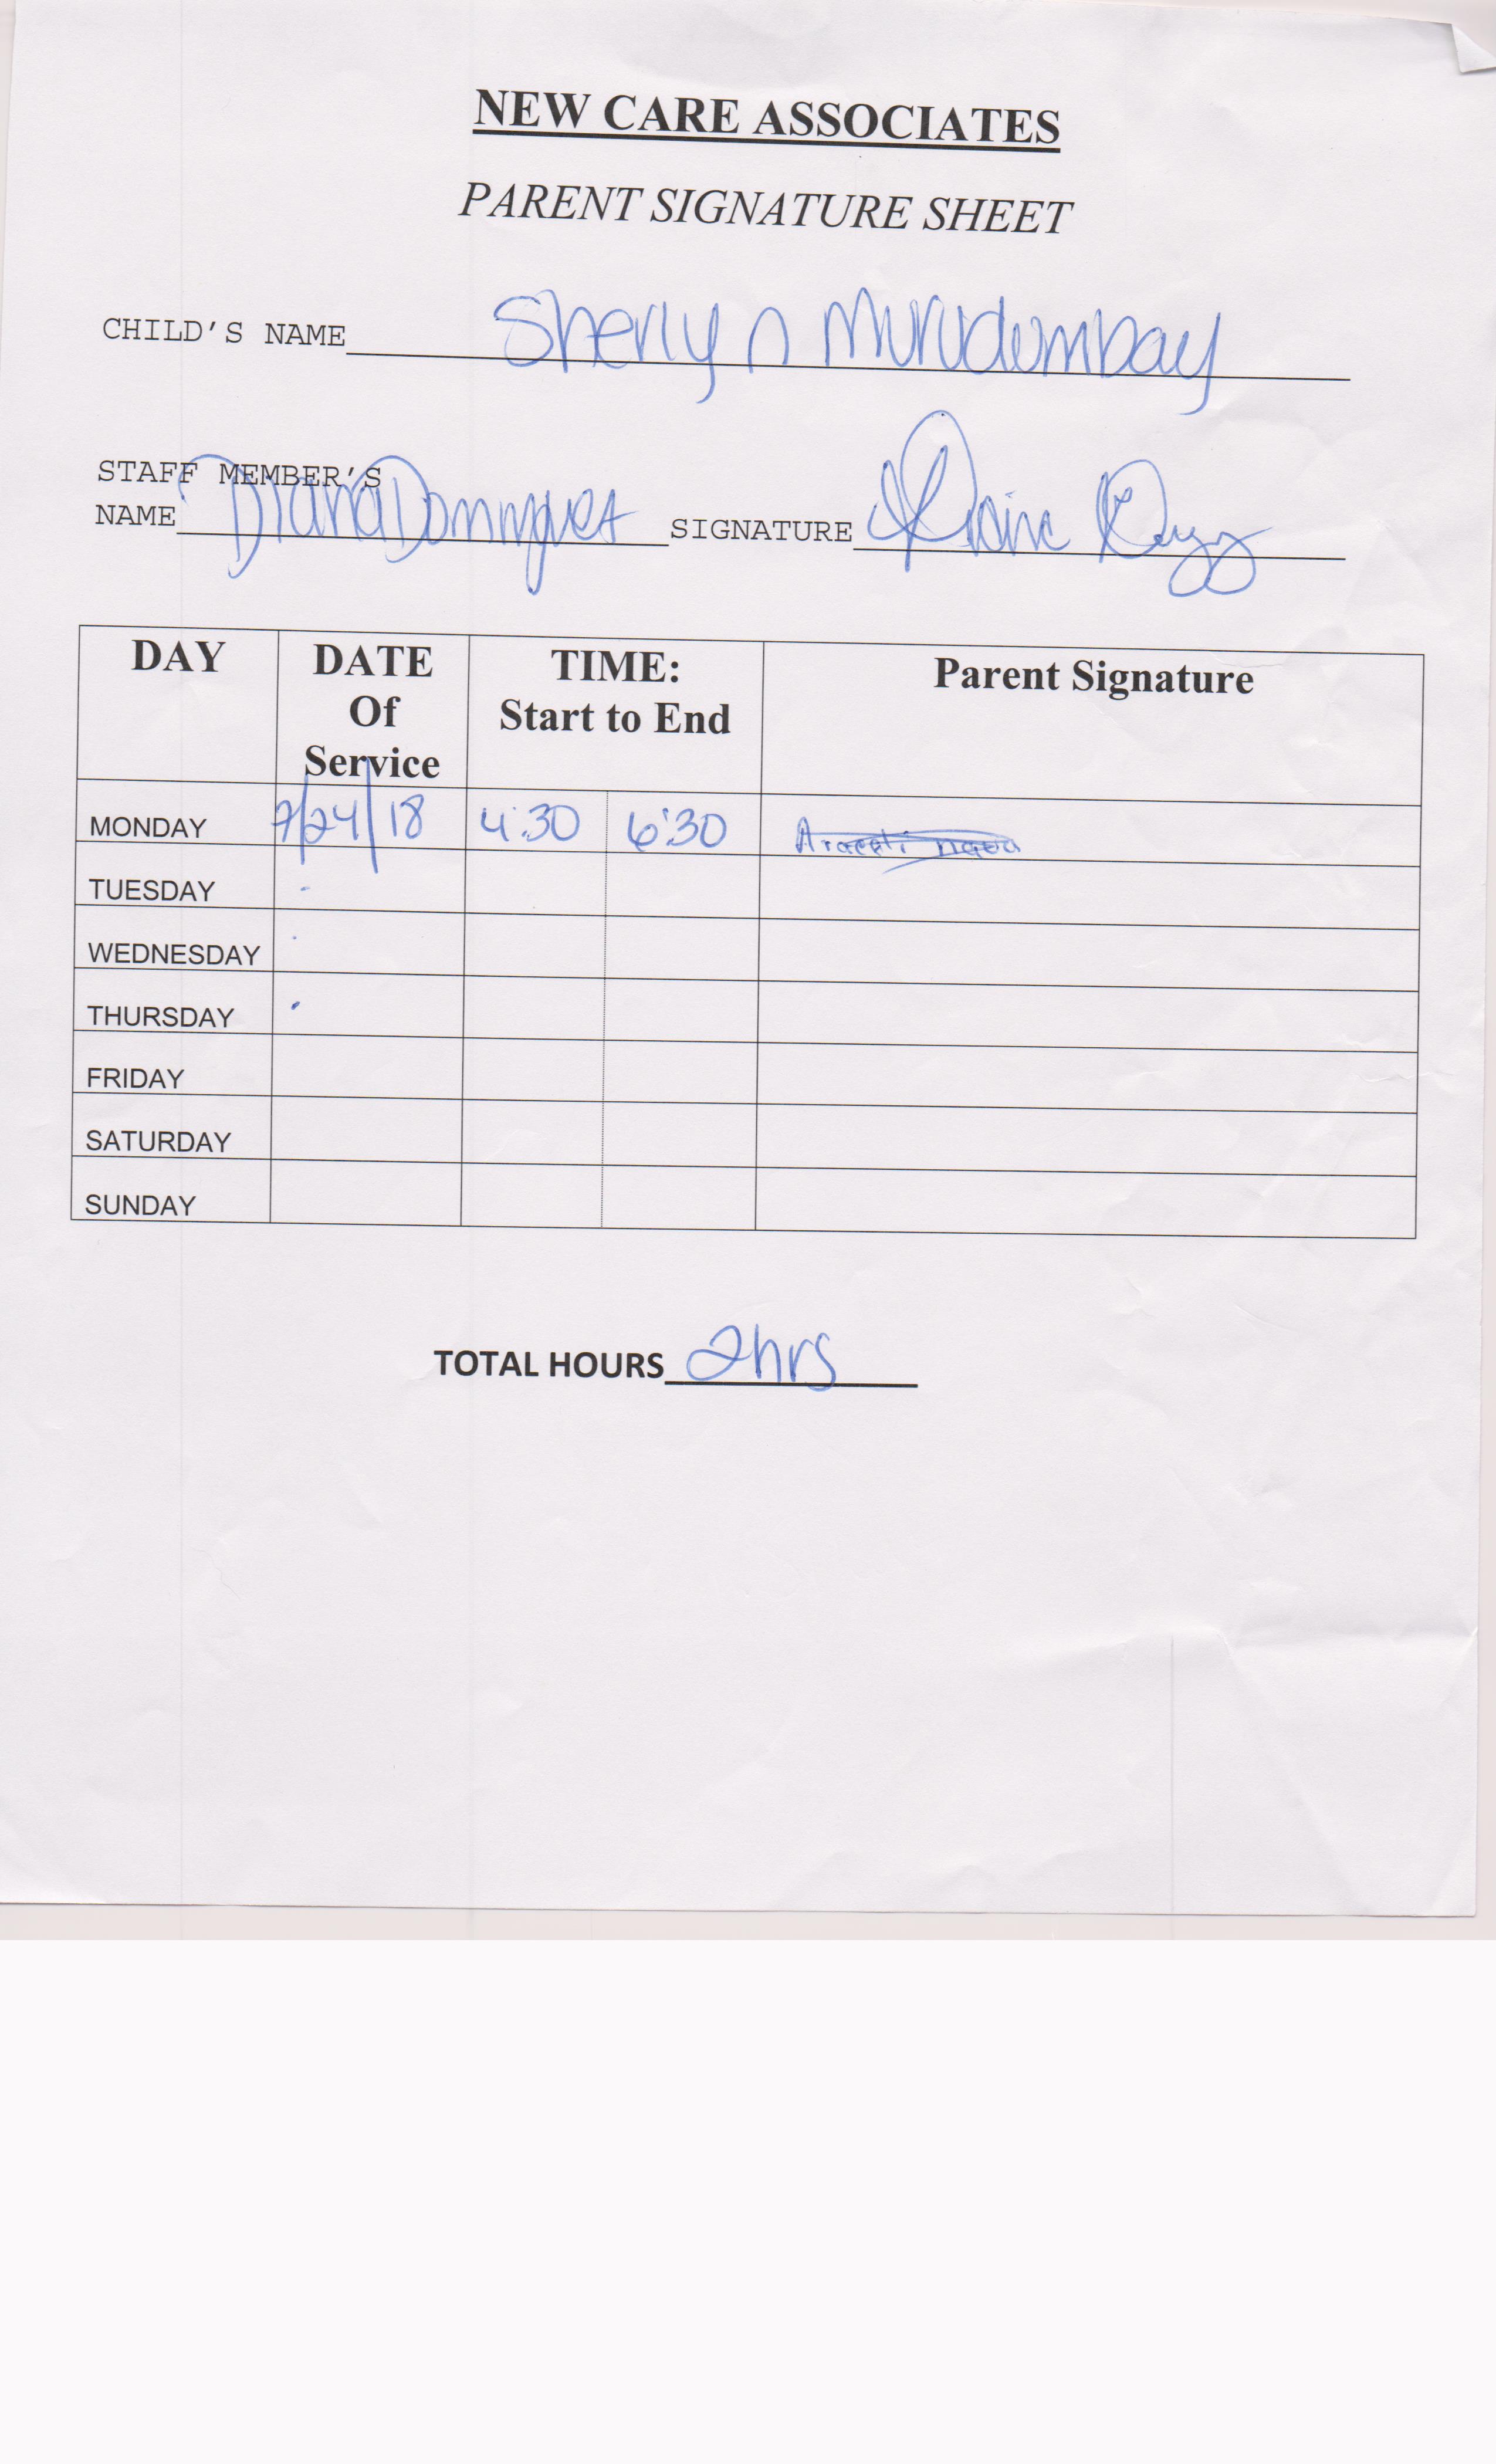 NEW CARE ASSOCIATES
PARENT SIGNATURE SHEET
CHILD'S NAME Sherly n Murudumbay
STAFF MEMBER'S
NAME Diana Dominguez SIGNATURE
DAY DATE Of Service TIME: Start to End Parent Signature
MONDAY 7/24/18 4:30 6:30 Araceli nava
TUESDAY
WEDNESDAY
THURSDAY
FRIDAY
SATURDAY
SUNDAY
TOTAL HOURS 2hrs